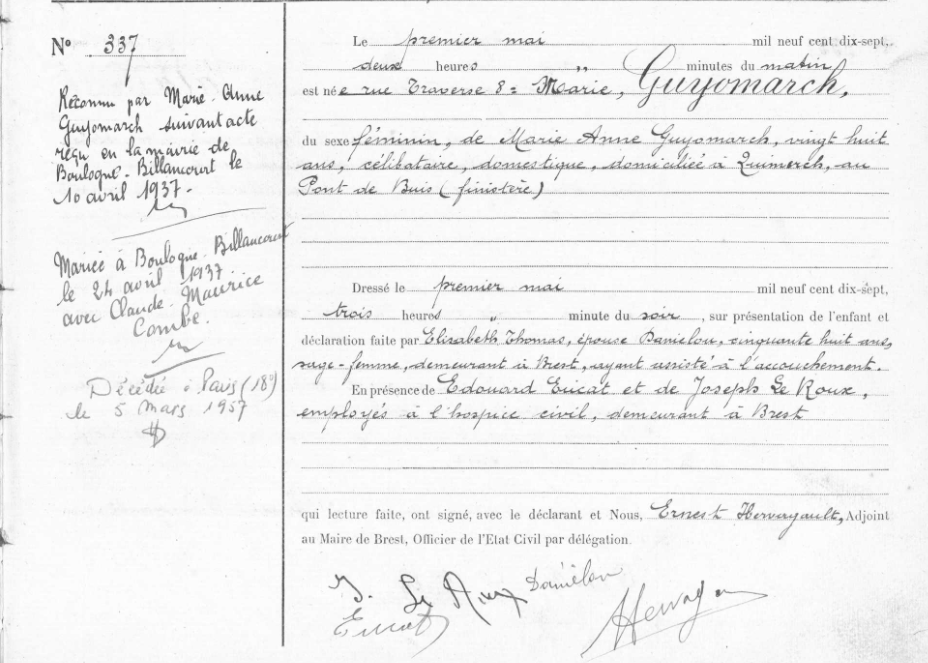 N° 337
Reconnu par Marie-Anne
Guyomarch suivant acte
reçu en la mairie de
Boulogne-Billancourt le
10 avril 1937-
Mariée à Boulogne-Billancourt
le 24 avril 1937
avec Claude-Maurice
Combe.
Décédée à Paris (18e)
le 5 Mars 1957
Le premier mai mil neuf cent dix-sept,
deux heures " minutes du matin
est née rue Traverse 8= Marie, Guyomarch,
du sexe féminin, de Marie Anne Guyomarch, vingt huit
ans, célibataire, domestique, domiciliée à Quimerch, au
Pont de Buis (finistère)
Dressé le premier mai mil neuf cent dix-sept,
trois heures " minute du soir, sur présentation de l'enfant et
déclaration faite par Elisabeth Thomas, épouse Danielou, cinquante huit ans,
sage-femme, demeurant à Brest, ayant assisté à l'accouchement.
En présence de Edouard Eucat et de Joseph Le Roux,
employés à l'hospice civil, demeurant à Brest
qui lecture faite, ont signé, avec le déclarant et Nous, Ernest Hervagault, Adjoint
au Maire de Brest, Officier de l'Etat Civil par délégation.
J. Le Roux Daniélou
Eucat